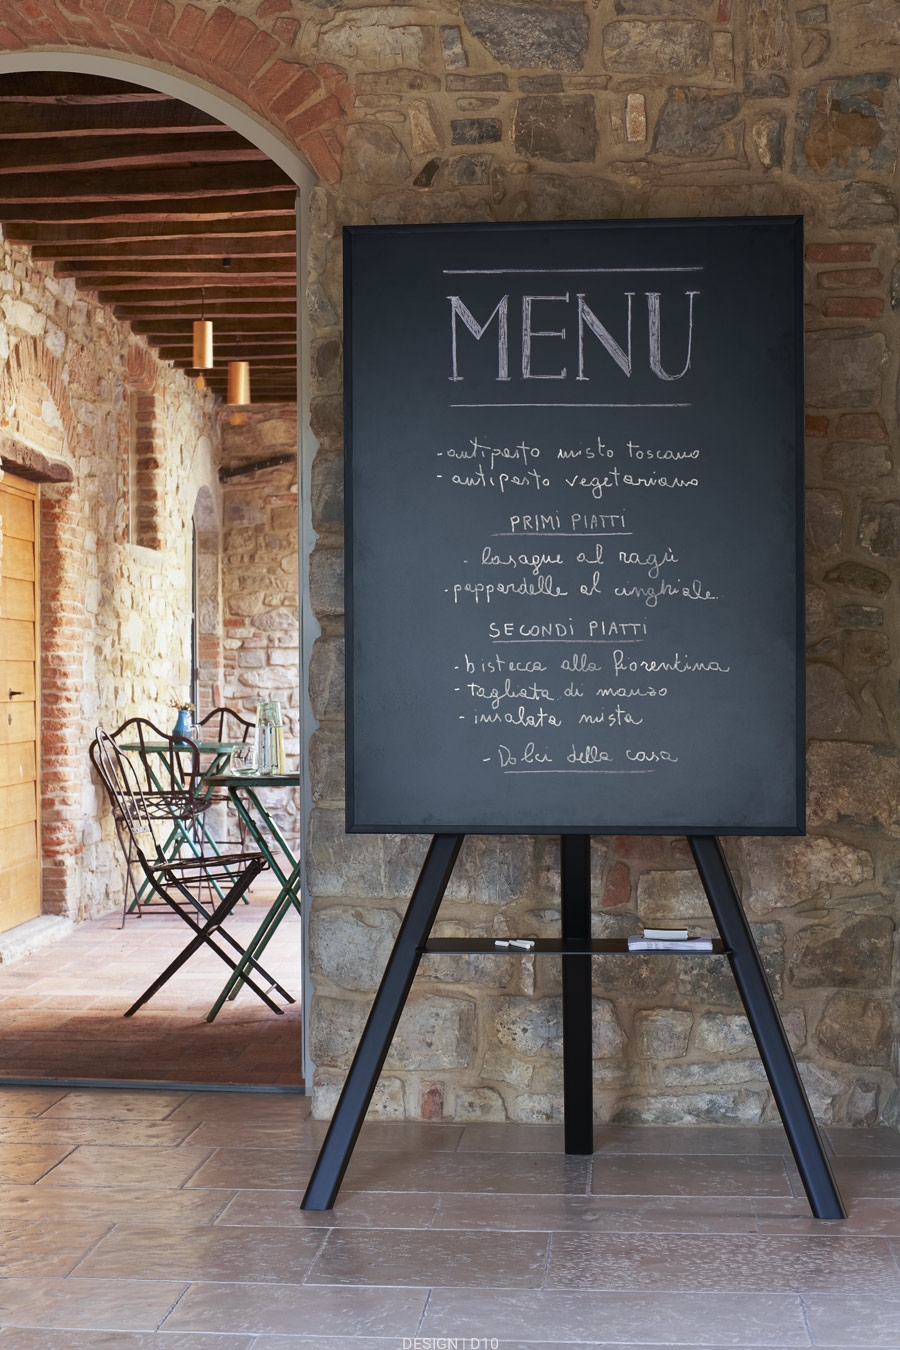 MENU
- antipasto misto toscano
- antipasto vegetariano
PRIMI PIATTI
- lasagne al ragù
- pappardelle al cinghiale
SECONDI PIATTI
- bistecca alla fiorentina
- tagliata di manzo
- insalata mista
- Dolci della casa
DESIGN | D10